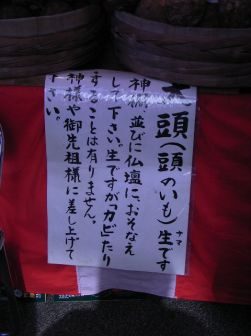 頭(頭のいも)生です
ナマ
神様、並びに仏壇に、おそなえ
して下さい。生ですが「カビ」たり
することは有りません。
神様や御先祖様に差し上げて
下さい。